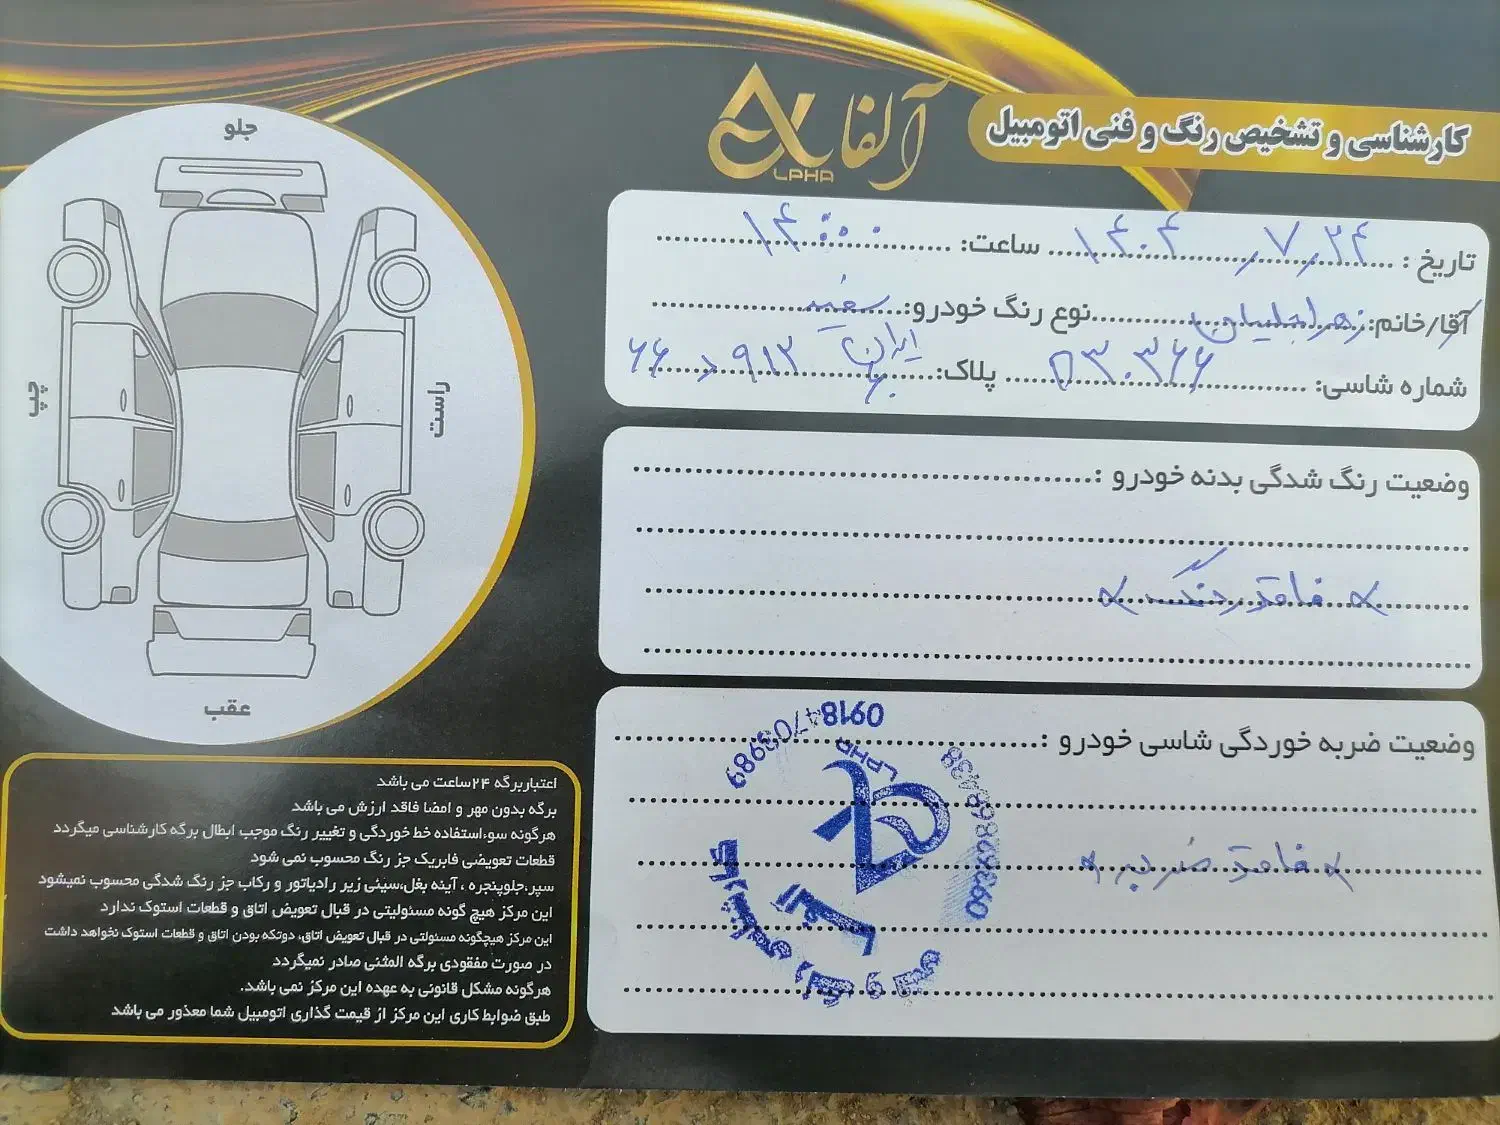 کارشناسی و تشخیص رنگ و فنی اتومبیل
آلفا
LPHA
تاریخ : ۱۴۰۴/۷/۲۴ ساعت: ۱۴:۰۰
آقا/خانم: زهرا جلیلیان نوع رنگ خودرو: سفید
شماره شاسی: ۵۳۰۳۶۶ پلاک: ایران ۶۶ د ۹۱۲
وضعیت رنگ شدگی بدنه خودرو :
فاقد رنگ
وضعیت ضربه خوردگی شاسی خودرو :
فاقد ضربه
09184703989
LPHA
آلفا
کارشناسی رنگ و فنی
جلو
چپ
راست
عقب
اعتباربرگه ۲۴ساعت می باشد
برگه بدون مهر و امضا فاقد ارزش می باشد
هرگونه سوءاستفاده خط خوردگی و تغییر رنگ موجب ابطال برگه کارشناسی میگردد
قطعات تعویضی فابریک جز رنگ محسوب نمی شود
سپر،جلوپنجره ، آینه بغل،سینی زیر رادیاتور و رکاب جز رنگ شدگی محسوب نمیشود
این مرکز هیچ گونه مسئولیتی در قبال تعویض اتاق و قطعات استوک ندارد
این مرکز هیچگونه مسئولتی در قبال تعویض اتاق، دوتکه بودن اتاق و قطعات استوک نخواهد داشت
در صورت مفقودی برگه المثنی صادر نمیگردد
هرگونه مشکل قانونی به عهده این مرکز نمی باشد.
طبق ضوابط کاری این مرکز از قیمت گذاری اتومبیل شما معذور می باشد